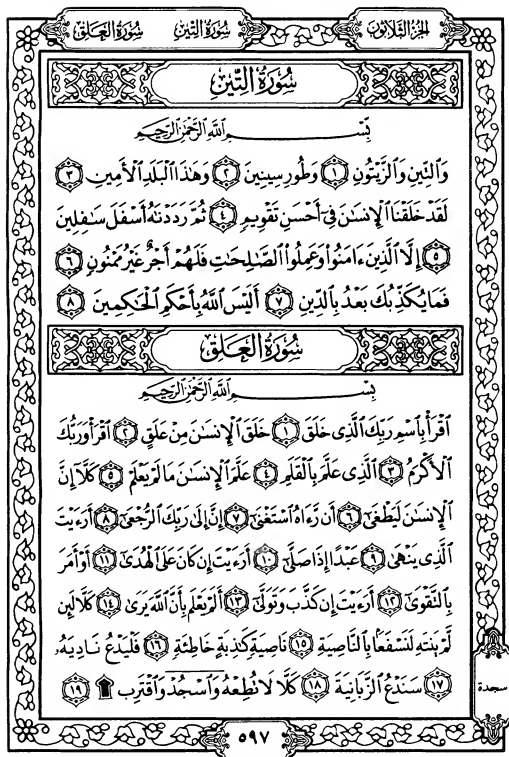 سُورَةُ العَلَق سُورَةُ التِّين الجُزءُ الثَّلَاثُونَ
سُورَةُ التِّينِ
بِسْمِ اللَّهِ الرَّحْمَٰنِ الرَّحِيمِ
وَٱلتِّينِ وَٱلزَّيْتُونِ ١ وَطُورِ سِينِينَ ٢ وَهَٰذَا ٱلْبَلَدِ ٱلْأَمِينِ ٣
لَقَدْ خَلَقْنَا ٱلْإِنسَٰنَ فِىٓ أَحْسَنِ تَقْوِيمٍ ٤ ثُمَّ رَدَدْنَٰهُ أَسْفَلَ سَٰفِلِينَ
٥ إِلَّا ٱلَّذِينَ ءَامَنُوا۟ وَعَمِلُوا۟ ٱلصَّٰلِحَٰتِ فَلَهُمْ أَجْرٌ غَيْرُ مَمْنُونٍ ٦
فَمَا يُكَذِّبُكَ بَعْدُ بِٱلدِّينِ ٧ أَلَيْسَ ٱللَّهُ بِأَحْكَمِ ٱلْحَٰكِمِينَ ٨
سُورَةُ العَلَقِ
بِسْمِ اللَّهِ الرَّحْمَٰنِ الرَّحِيمِ
ٱقْرَأْ بِٱسْمِ رَبِّكَ ٱلَّذِى خَلَقَ ١ خَلَقَ ٱلْإِنسَٰنَ مِنْ عَلَقٍ ٢ ٱقْرَأْ وَرَبُّكَ
ٱلْأَكْرَمُ ٣ ٱلَّذِى عَلَّمَ بِٱلْقَلَمِ ٤ عَلَّمَ ٱلْإِنسَٰنَ مَا لَمْ يَعْلَمْ ٥ كَلَّآ إِنَّ
ٱلْإِنسَٰنَ لَيَطْغَىٰٓ ٦ أَن رَّءَاهُ ٱسْتَغْنَىٰٓ ٧ إِنَّ إِلَىٰ رَبِّكَ ٱلرُّجْعَىٰٓ ٨ أَرَءَيْتَ
ٱلَّذِى يَنْهَىٰ ٩ عَبْدًا إِذَا صَلَّىٰٓ ١٠ أَرَءَيْتَ إِن كَانَ عَلَى ٱلْهُدَىٰٓ ١١ أَوْ أَمَرَ
بِٱلتَّقْوَىٰٓ ١٢ أَرَءَيْتَ إِن كَذَّبَ وَتَوَلَّىٰٓ ١٣ أَلَمْ يَعْلَم بِأَنَّ ٱللَّهَ يَرَىٰ ١٤ كَلَّا لَئِن
لَّمْ يَنتَهِ لَنَسْفَعًۢا بِٱلنَّاصِيَةِ ١٥ نَاصِيَةٍ كَٰذِبَةٍ خَاطِئَةٍ ١٦ فَلْيَدْعُ نَادِيَهُۥ
١٧ سَنَدْعُ ٱلزَّبَانِيَةَ ١٨ كَلَّا لَا تُطِعْهُ وَٱسْجُدْ وَٱقْتَرِب ۩ ١٩
سجدة
٥٩٧